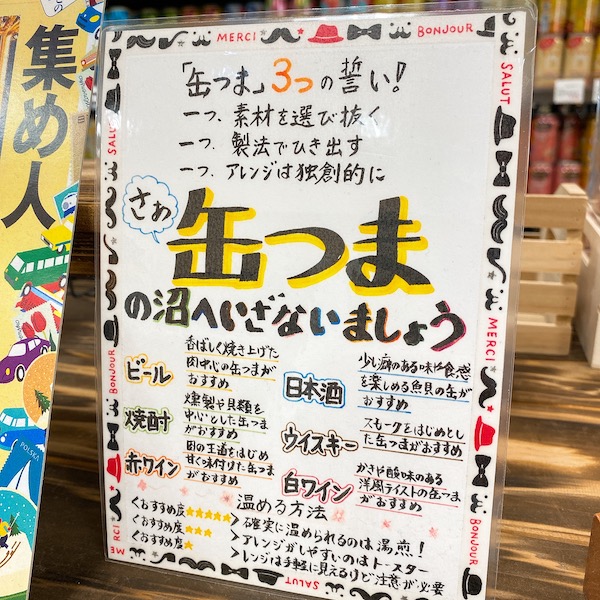 MERCI
BONJOUR
SALUT
「缶つま」3つの誓い!
一つ、素材を選び抜く
一つ、製法でひき出す
一つ、アレンジは独創的に
さぁ
缶つま
の沼へいざないましょう
ビール
香ばしく焼き上げた
肉中心の缶つまが
おすすめ
焼酎
燻製や貝類を
中心とした缶つま
がおすすめ
赤ワイン
肉の王道をはじめ
甘く味付けた缶つま
がおすすめ
日本酒
少し癖のある味や食感
を楽しめる魚貝の缶が
おすすめ
ウイスキー
スモークをはじめとし
た缶つまがおすすめ
白ワイン
かきや酸味のある
洋風テイストの缶つま
がおすすめ
温める方法
<おすすめ度★★★★★>確実に温められるのは湯煎!
<おすすめ度★★★>アレンジがしやすいのはトースター
<おすすめ度★>レンジは手軽に見えるけど注意が必要
SALUT
BONJOUR
MERCI
MERCI
BONJOUR
SALUT
集め人
POLSKA